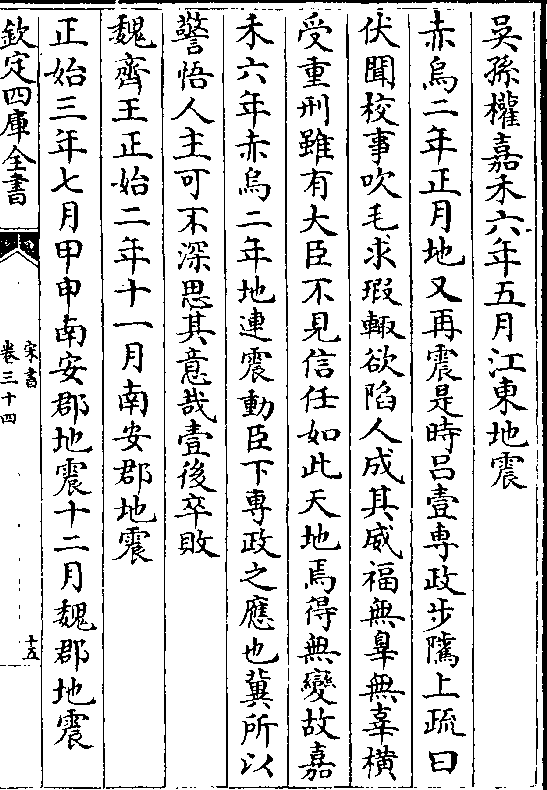 吳孫權嘉禾六年五月江東地震
赤烏二年正月地又再震是時吕壹専政步隲上疏曰
伏聞校事吹毛求瑕輙欲陷人成其威福無辠無辜橫
受重刑雖有大臣不見信任如此天地焉得無變故嘉
禾六年赤烏二年地連震動臣下専政之應也冀所以
警悟人主可不深思其意哉壹後卒敗
魏齊王正始二年十一月南安郡地震
正始三年七月甲申南安郡地震十二月魏郡地震
欽定四庫全書
宋書
卷三十四
十五